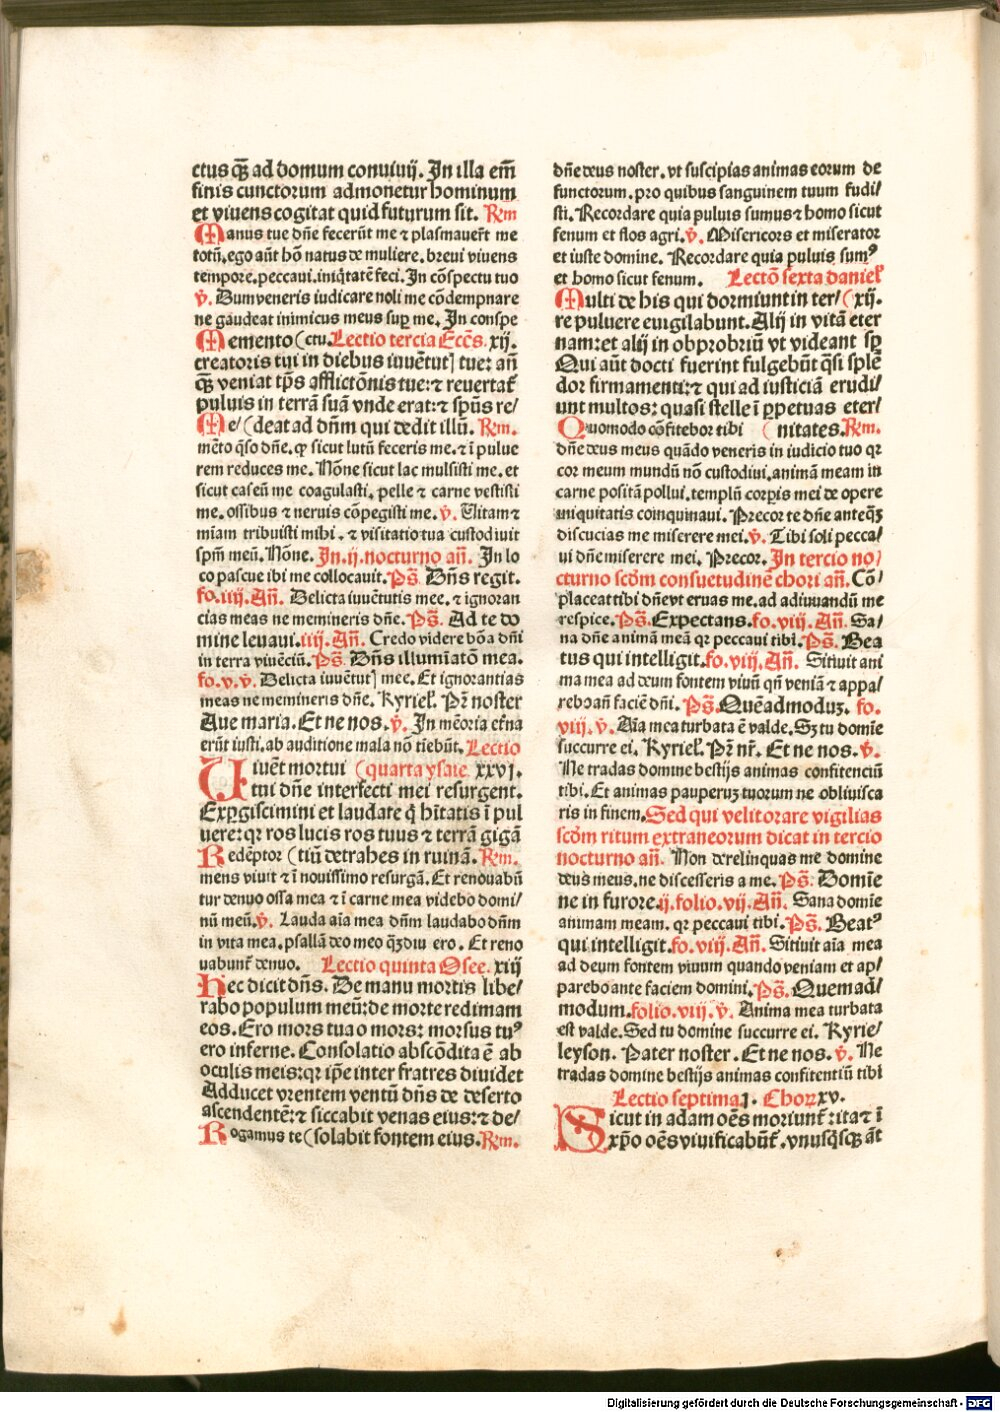 ctus q̃ȝ ad domum conuiuij. In illa em̃
finis cunctorum admonetur hominum
et viuens cogitat quid futurum sit. Rm̃
Manus tue dñe fecerũt me ⁊ plasmauer̃t me
totũ, ego aũt hõ natus de muliere. breui viuens
tempore. peccaui. iniq̃tatẽ feci. In cõspectu tuo
v̇. Dum veneris iudicare noli me cõdempnare
ne gaudeat inimicus meus sup me. In conspe
Memento (ctu. Lectio tercia Eccs̃. xij.
creatoris tui in diebus iuuẽtut] tue: añ
q̃ȝ veniat tp̃s afflictõnis tue: ⁊ reuertat̃
puluis in terrã suã vnde erat: ⁊ sp̃us re/
Me/ (deat ad dñm qui dedit illũ. Rm̃.
mẽto q̃so dñe. ꝙ sicut lutũ feceris me. ⁊ ĩ pulue
rem reduces me. Nõne sicut lac mulsisti me. et
sicut caseũ me coagulasti. pelle ⁊ carne vestisti
me. ossibus ⁊ neruis cõpegisti me. v̇. Vitam ⁊
miam tribuisti mihi. ⁊ visitatio tua custodiuit
spm̃ meũ. Nõne. In .ij. nocturno añ. In lo
co pascue ibi me collocauit. Ps̃. Dñs regit.
fo. iiij. Añ. Delicta iuuẽtutis mee. ⁊ ignoran
cias meas ne memineris dñe. Ps̃. Ad te do
mine leuaui. iiij. Añ. Credo videre bõa dñi
in terra viuẽciũ. Ps̃. Dñs illumiatõ mea.
fo. v. v̇. Delicta iuuẽtut] mee. Et ignorantias
meas ne memineris dñe. Kyriel̃. Pr̃ noster
Aue maria. Et ne nos. v̇. In mẽoria et̃na
erũt iusti. ab auditione mala nõ tiẽbũt. Lectio
Uiuẽt mortui (quarta ysaie xxvj.
tui dñe interfecti mei resurgent.
Exꝑgiscimini et laudate q̃ hĩtatis ĩ pul
uere: qꝛ ros lucis ros tuus ⁊ terrã gigã
Redẽptor (tiũ detrahes in ruinã. Rm̃.
mens viuit ⁊ ĩ nouissimo resurgã. Et renouabũ
tur denuo ossa mea ⁊ ĩ carne mea videbo domi/
nũ meũ. v̇. Lauda aĩa mea dñm laudabo dñm
in vita mea. psallã deo meo q̃ȝdiu ero. Et reno
uabunt̃ denuo. Lectio quinta Osee. xiij
Hec dicit dñs. De manu mortis libe/
rabo populum meũ: de morte redimam
eos. Ero mors tua o mors: morsus tuꝰ
ero inferne. Consolatio abscõdita ẽ ab
oculis meis: qꝛ ip̃e inter fratres diuidet
Adducet vrentem ventũ dñs de deserto
ascendentẽ: ⁊ siccabit venas eius: ⁊ de/
Rogamus te (solabit fontem eius. Rm̃.
dñe deus noster. vt suscipias animas eorum de
functorum. pro quibus sanguinem tuum fudi/
sti. Recordare quia puluis sumus ⁊ homo sicut
fenum et flos agri. v̇. Misericors et miserator
et iuste domine. Recordare quia puluis sumꝰ
et homo sicut fenum. Lectõ sexta daniel̃
Multi de his qui dormiunt in ter/ (xij.
re puluere euigilabunt. Alij in vitã eter
nam: et alij in obprobriũ vt videant sp̃
Qui aũt docti fuerint fulgebũt q̃si splẽ
dor firmamenti: ⁊ qui ad iusticiã erudi/
unt multos: quasi stelle ĩ ꝑpetuas eter/
Quomodo cõfitebor tibi (nitates. Rm̃.
dñe deus meus quãdo veneris in iudicio tuo qꝛ
cor meum mundũ nõ custodiui. animã meam in
carne positã pollui. templũ corꝑis mei de opere
iniquitatis coinquinaui. Precor te dñe anteq̃ȝ
discucias me miserere mei. v̇. Tibi soli pecca/
ui dñe miserere mei. Precor. In tercio no/
cturno scd̃m consuetudinẽ chori añ. Cõ/
placeat tibi dñe vt eruas me. ad adiuuandũ me
respice. Ps̃. Expectans. fo. viij. Añ. Sa/
na dñe animã meã qꝛ peccaui tibi. Ps̃. Bea
tus qui intelligit. fo. viij. Añ. Sitiuit ani
ma mea ad deum fontem viuũ qñ veniã ⁊ appa/
rebo añ faciẽ dñi. Ps̃. Quẽadmoduȝ. fo.
viij. v̇. Aĩa mea turbata ẽ valde. Sȝ tu domĩe
succurre ei. Kyriel̃. Pr̃ nr̃. Et ne nos. v̇.
Ne tradas domine bestijs animas confitenciũ
tibi. Et animas pauperuȝ tuorum ne obliuisca
ris in finem. Sed qui velit orare vigilias
scd̃m ritum extraneorum dicat in tercio
nocturno añ. Non derelinquas me domine
deus meus. ne discesseris a me. Ps̃. Domĩe
ne in furore. ij. folio. vij. Añ. Sana domĩe
animam meam. qꝛ peccaui tibi. Ps̃. Beatꝰ
qui intelligit. fo. viij. Añ. Sitiuit aĩa mea
ad deum fontem viuum quando veniam et ap/
parebo ante faciem domini. Ps̃. Quemad/
modum. folio. viij. v̇. Anima mea turbata
est valde. Sed tu domine succurre ei. Kyrie/
leyson. Pater noster. Et ne nos. v̇. Ne
tradas domine bestijs animas confitentiũ tibi
Lectio septima. j. Choꝝ xv.
Sicut in adam oẽs moriunt̃: ita ⁊ ĩ
xp̃o oẽs viuificabũt̃. vnusq̃sq̃ȝ aũt
Digitalisierung gefördert durch die Deutsche Forschungsgemeinschaft - DFG